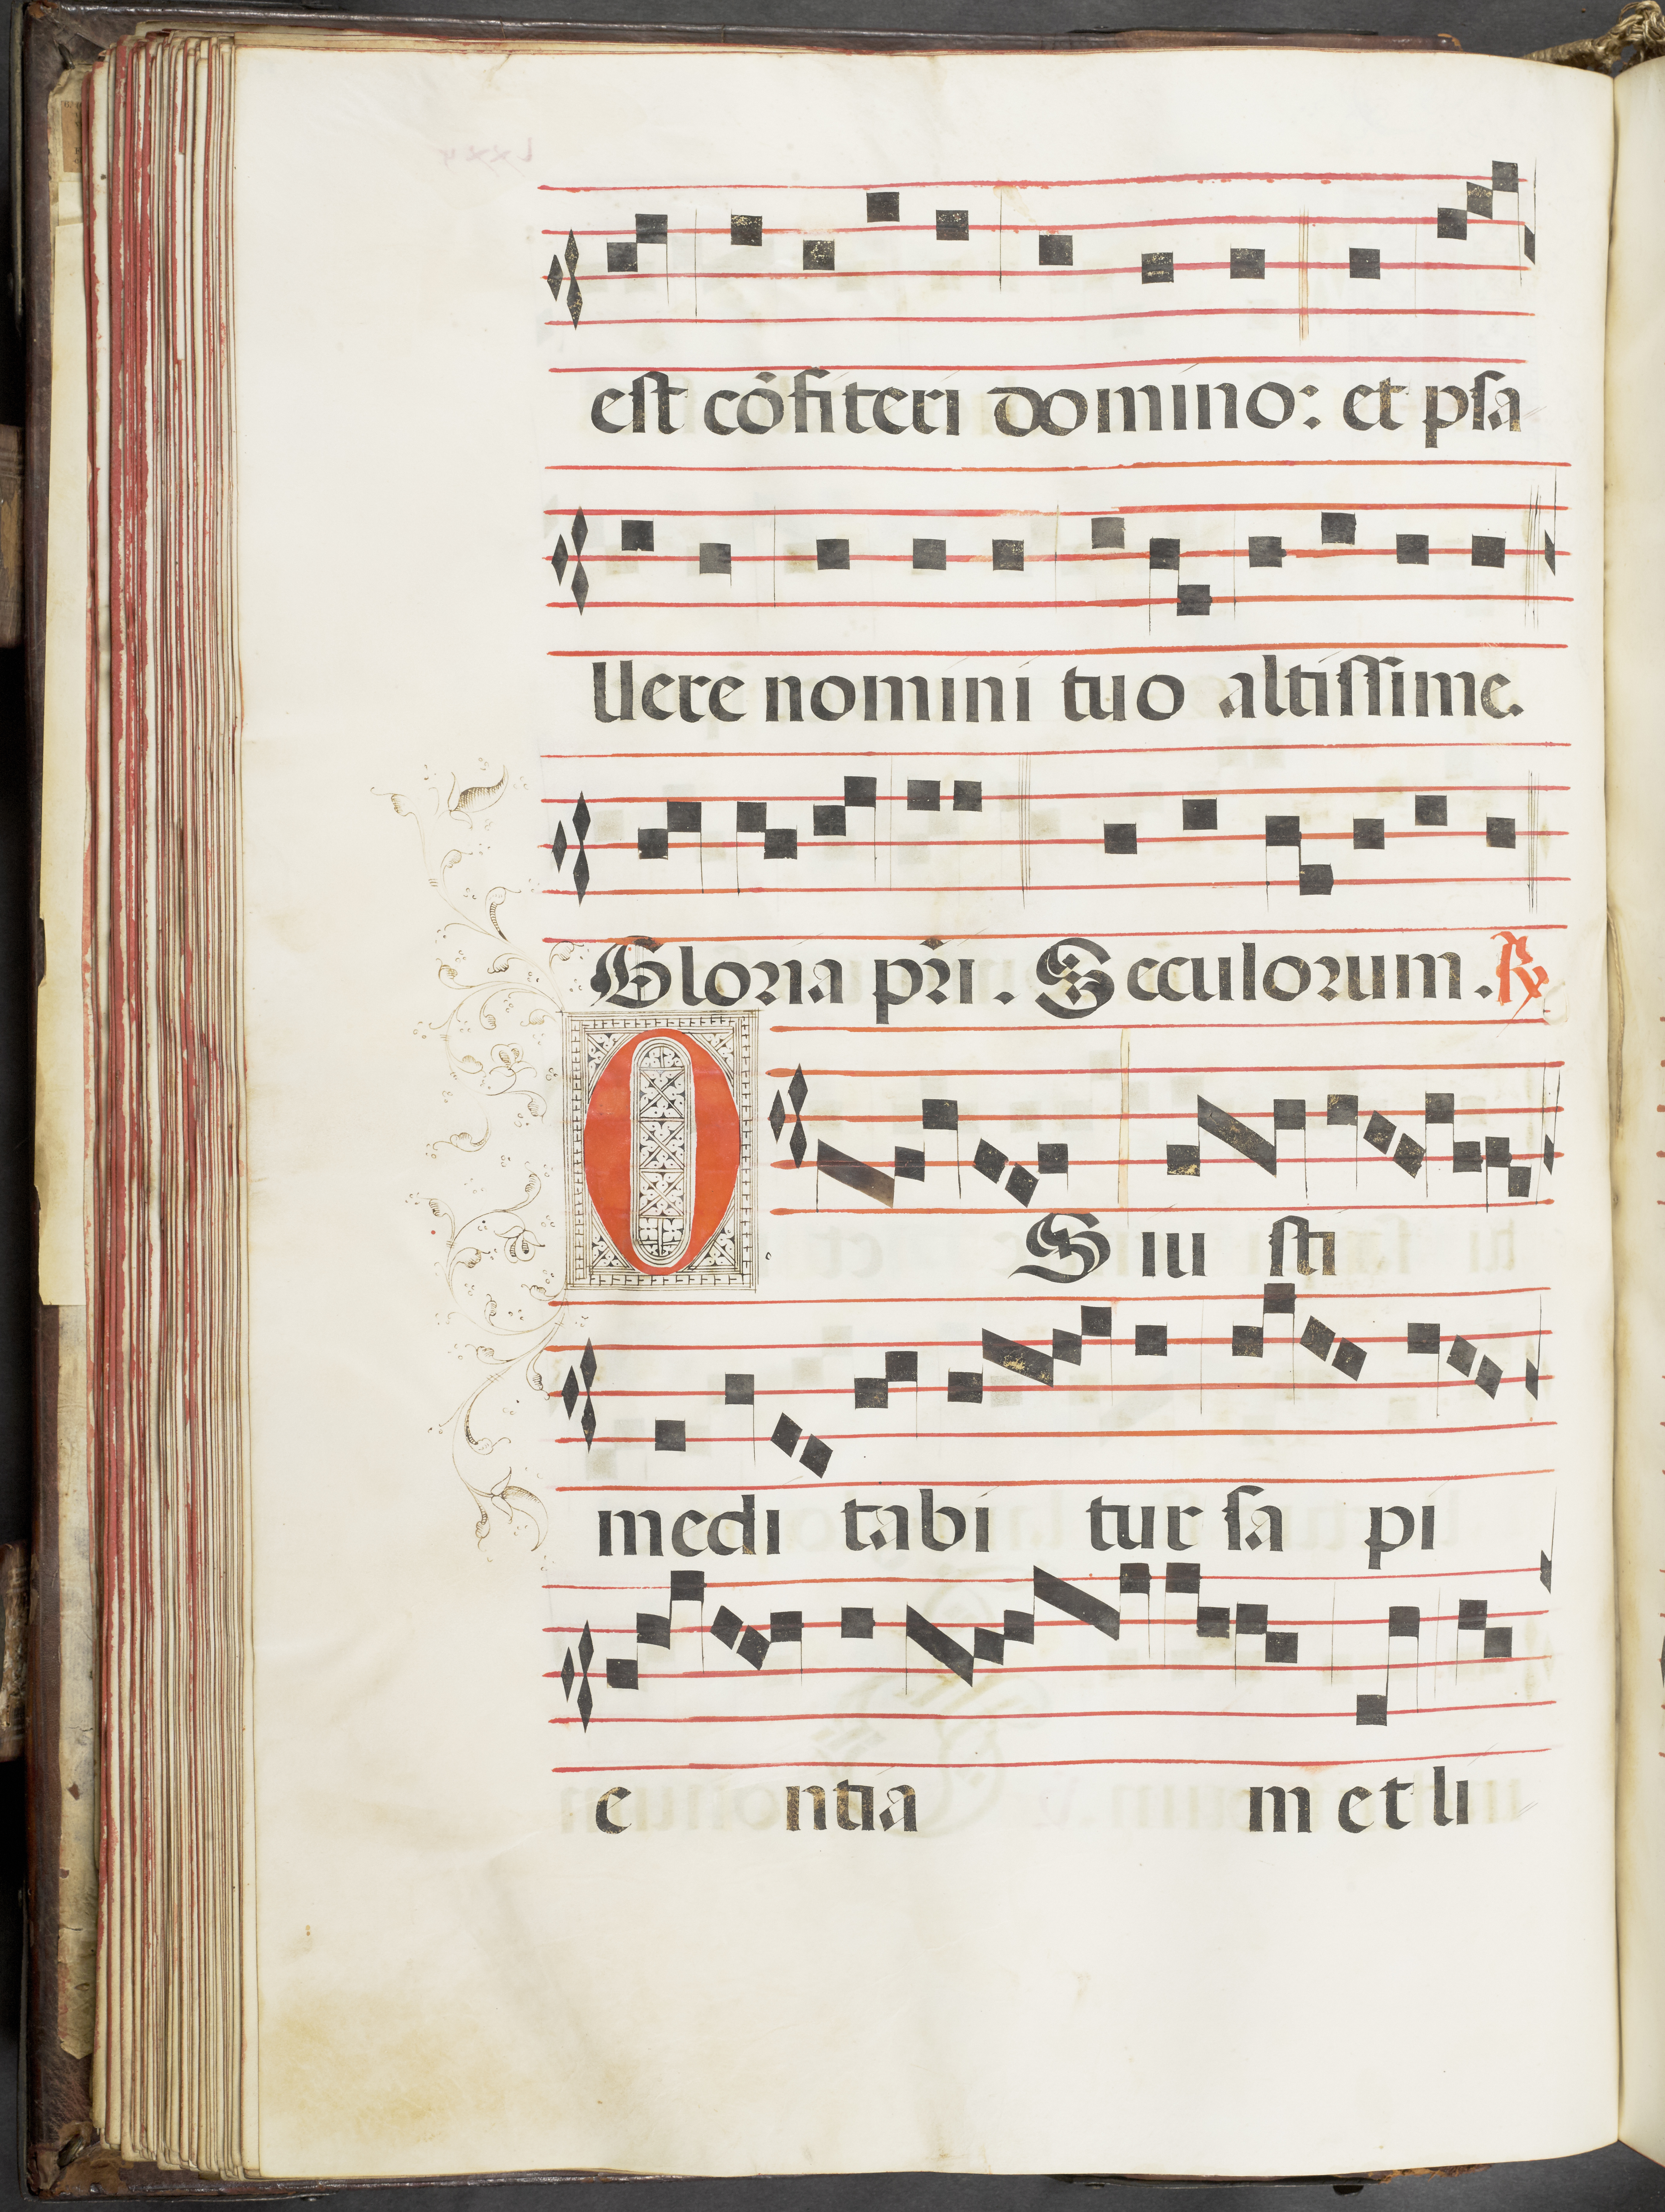 est cōfiteri domino: et psa
llere nomini tuo altissime.
Gloria pri̅. Seculorum. ℟
OS iu sti
medi tabi tur sa pi
e ntia m et li